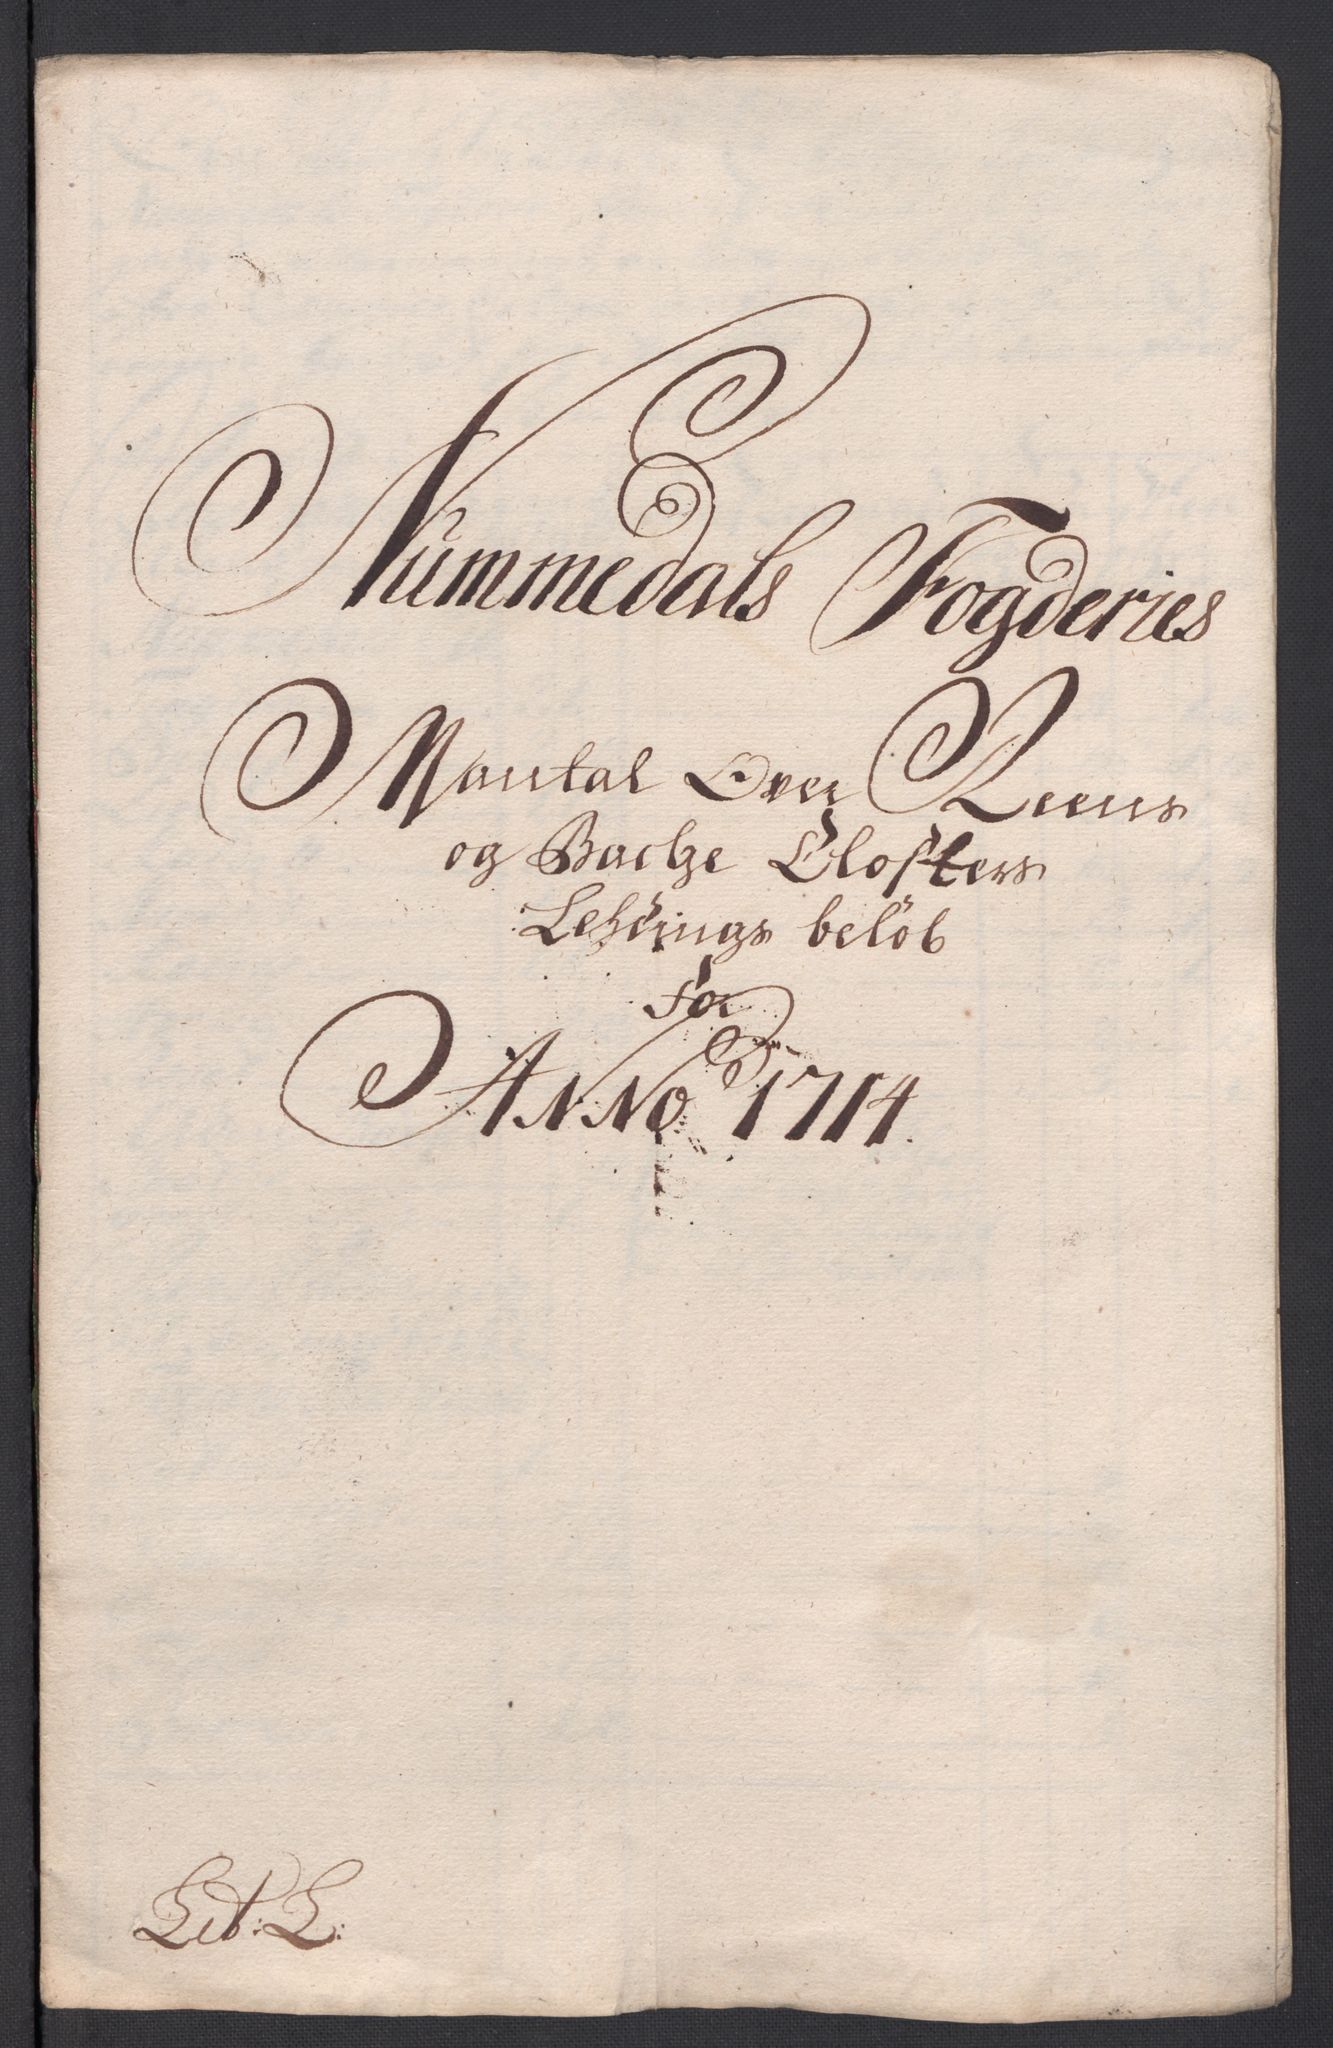 Nummedals Fogderies
Mantal Over Reens
og Bache Closters
Lehdings beløb
for
Anno 1714.
Lit: L: